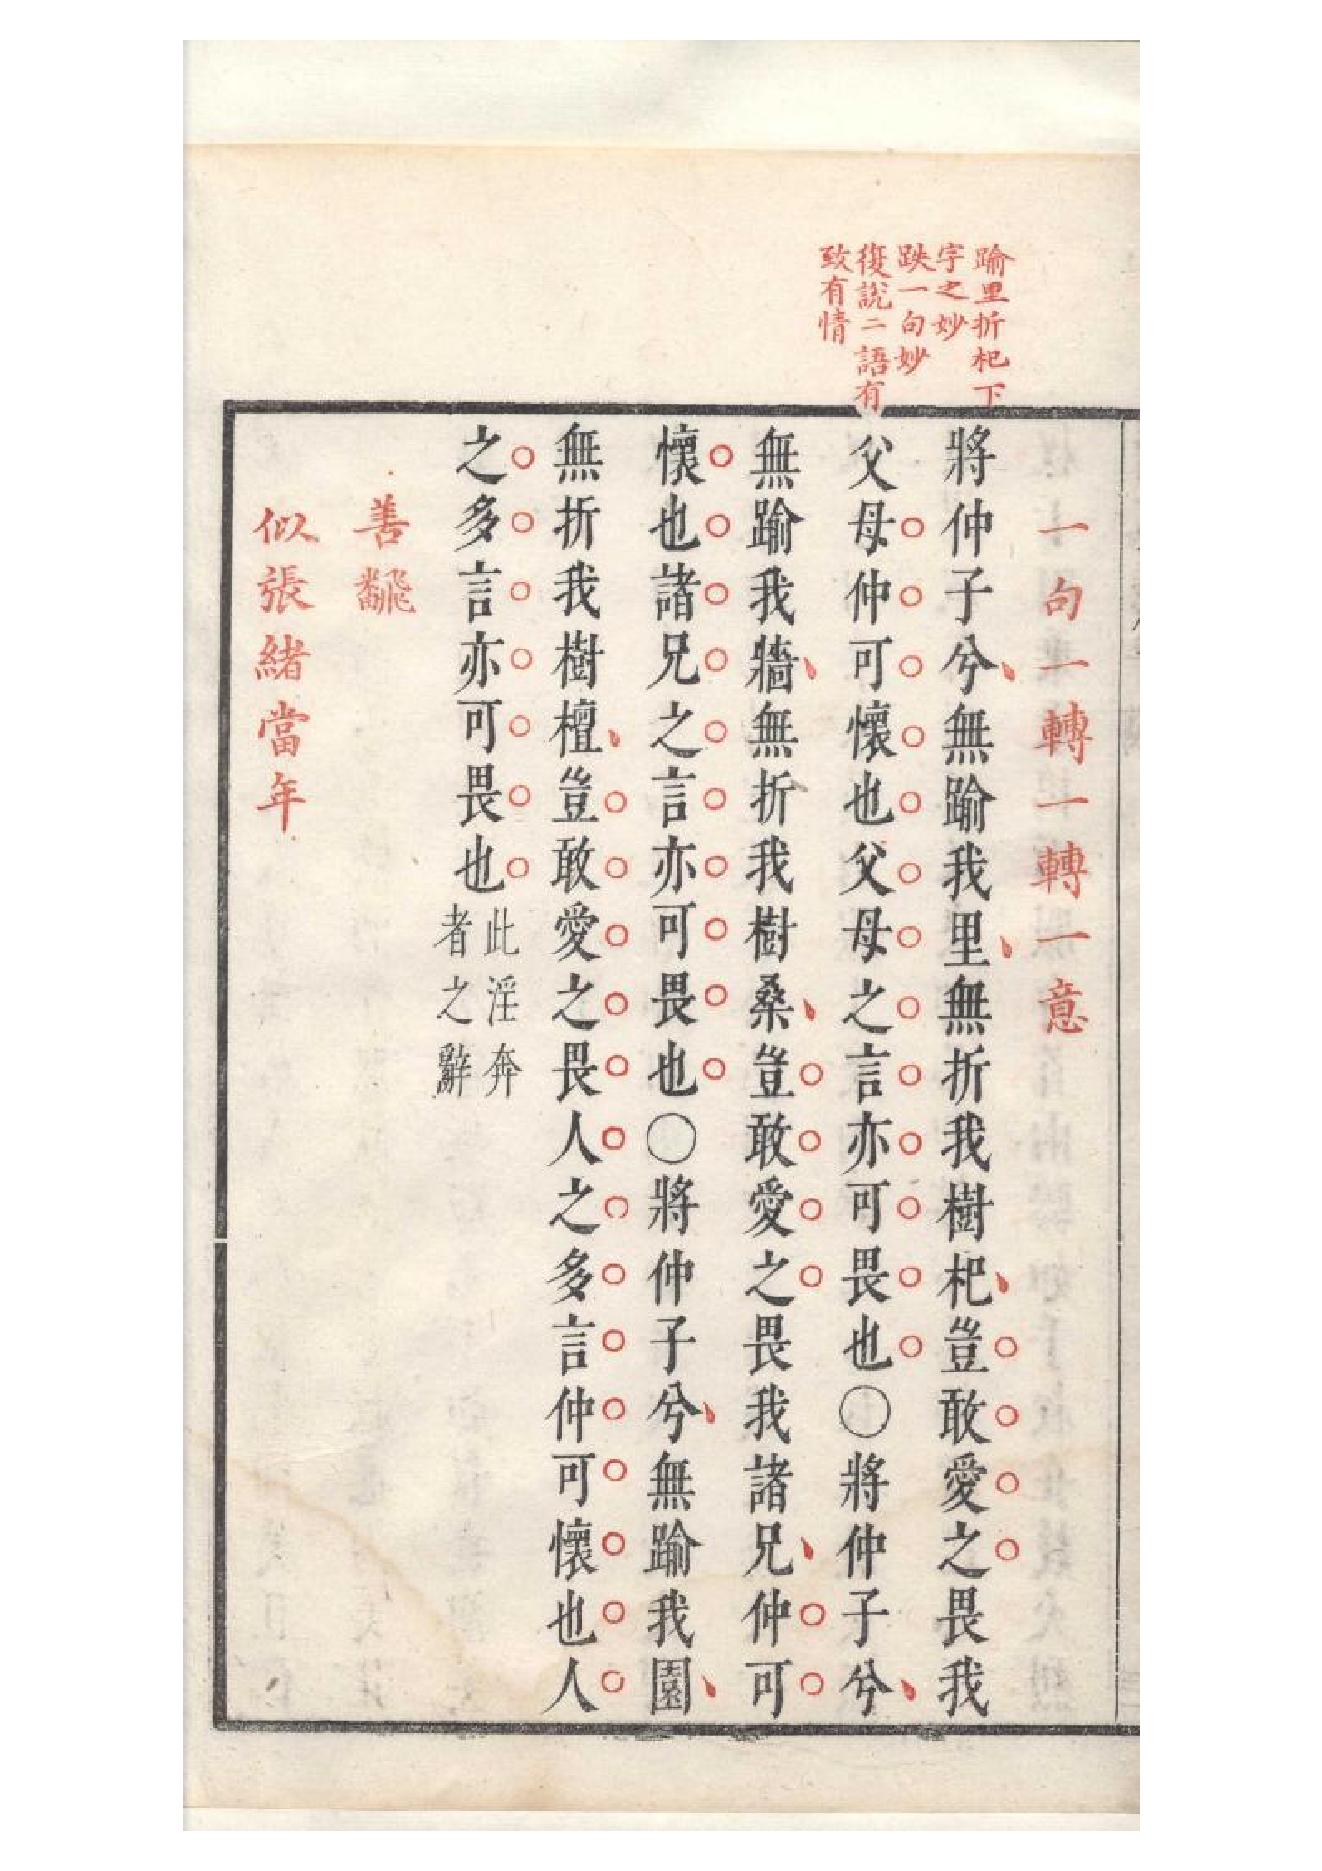 踰里折杞下
字之妙
跌一句妙
復說二語有
致有情
一句一轉一轉一意
將仲子兮無踰我里無折我樹杞豈敢愛之畏我
父母仲可懷也父母之言亦可畏也○將仲子兮
無踰我牆無折我樹桑豈敢愛之畏我諸兄仲可
懷也諸兄之言亦可畏也○將仲子兮無踰我園
無折我樹檀豈敢愛之畏人之多言仲可懷也人
之多言亦可畏也
此淫奔
者之辭
善飜
似張緒當年